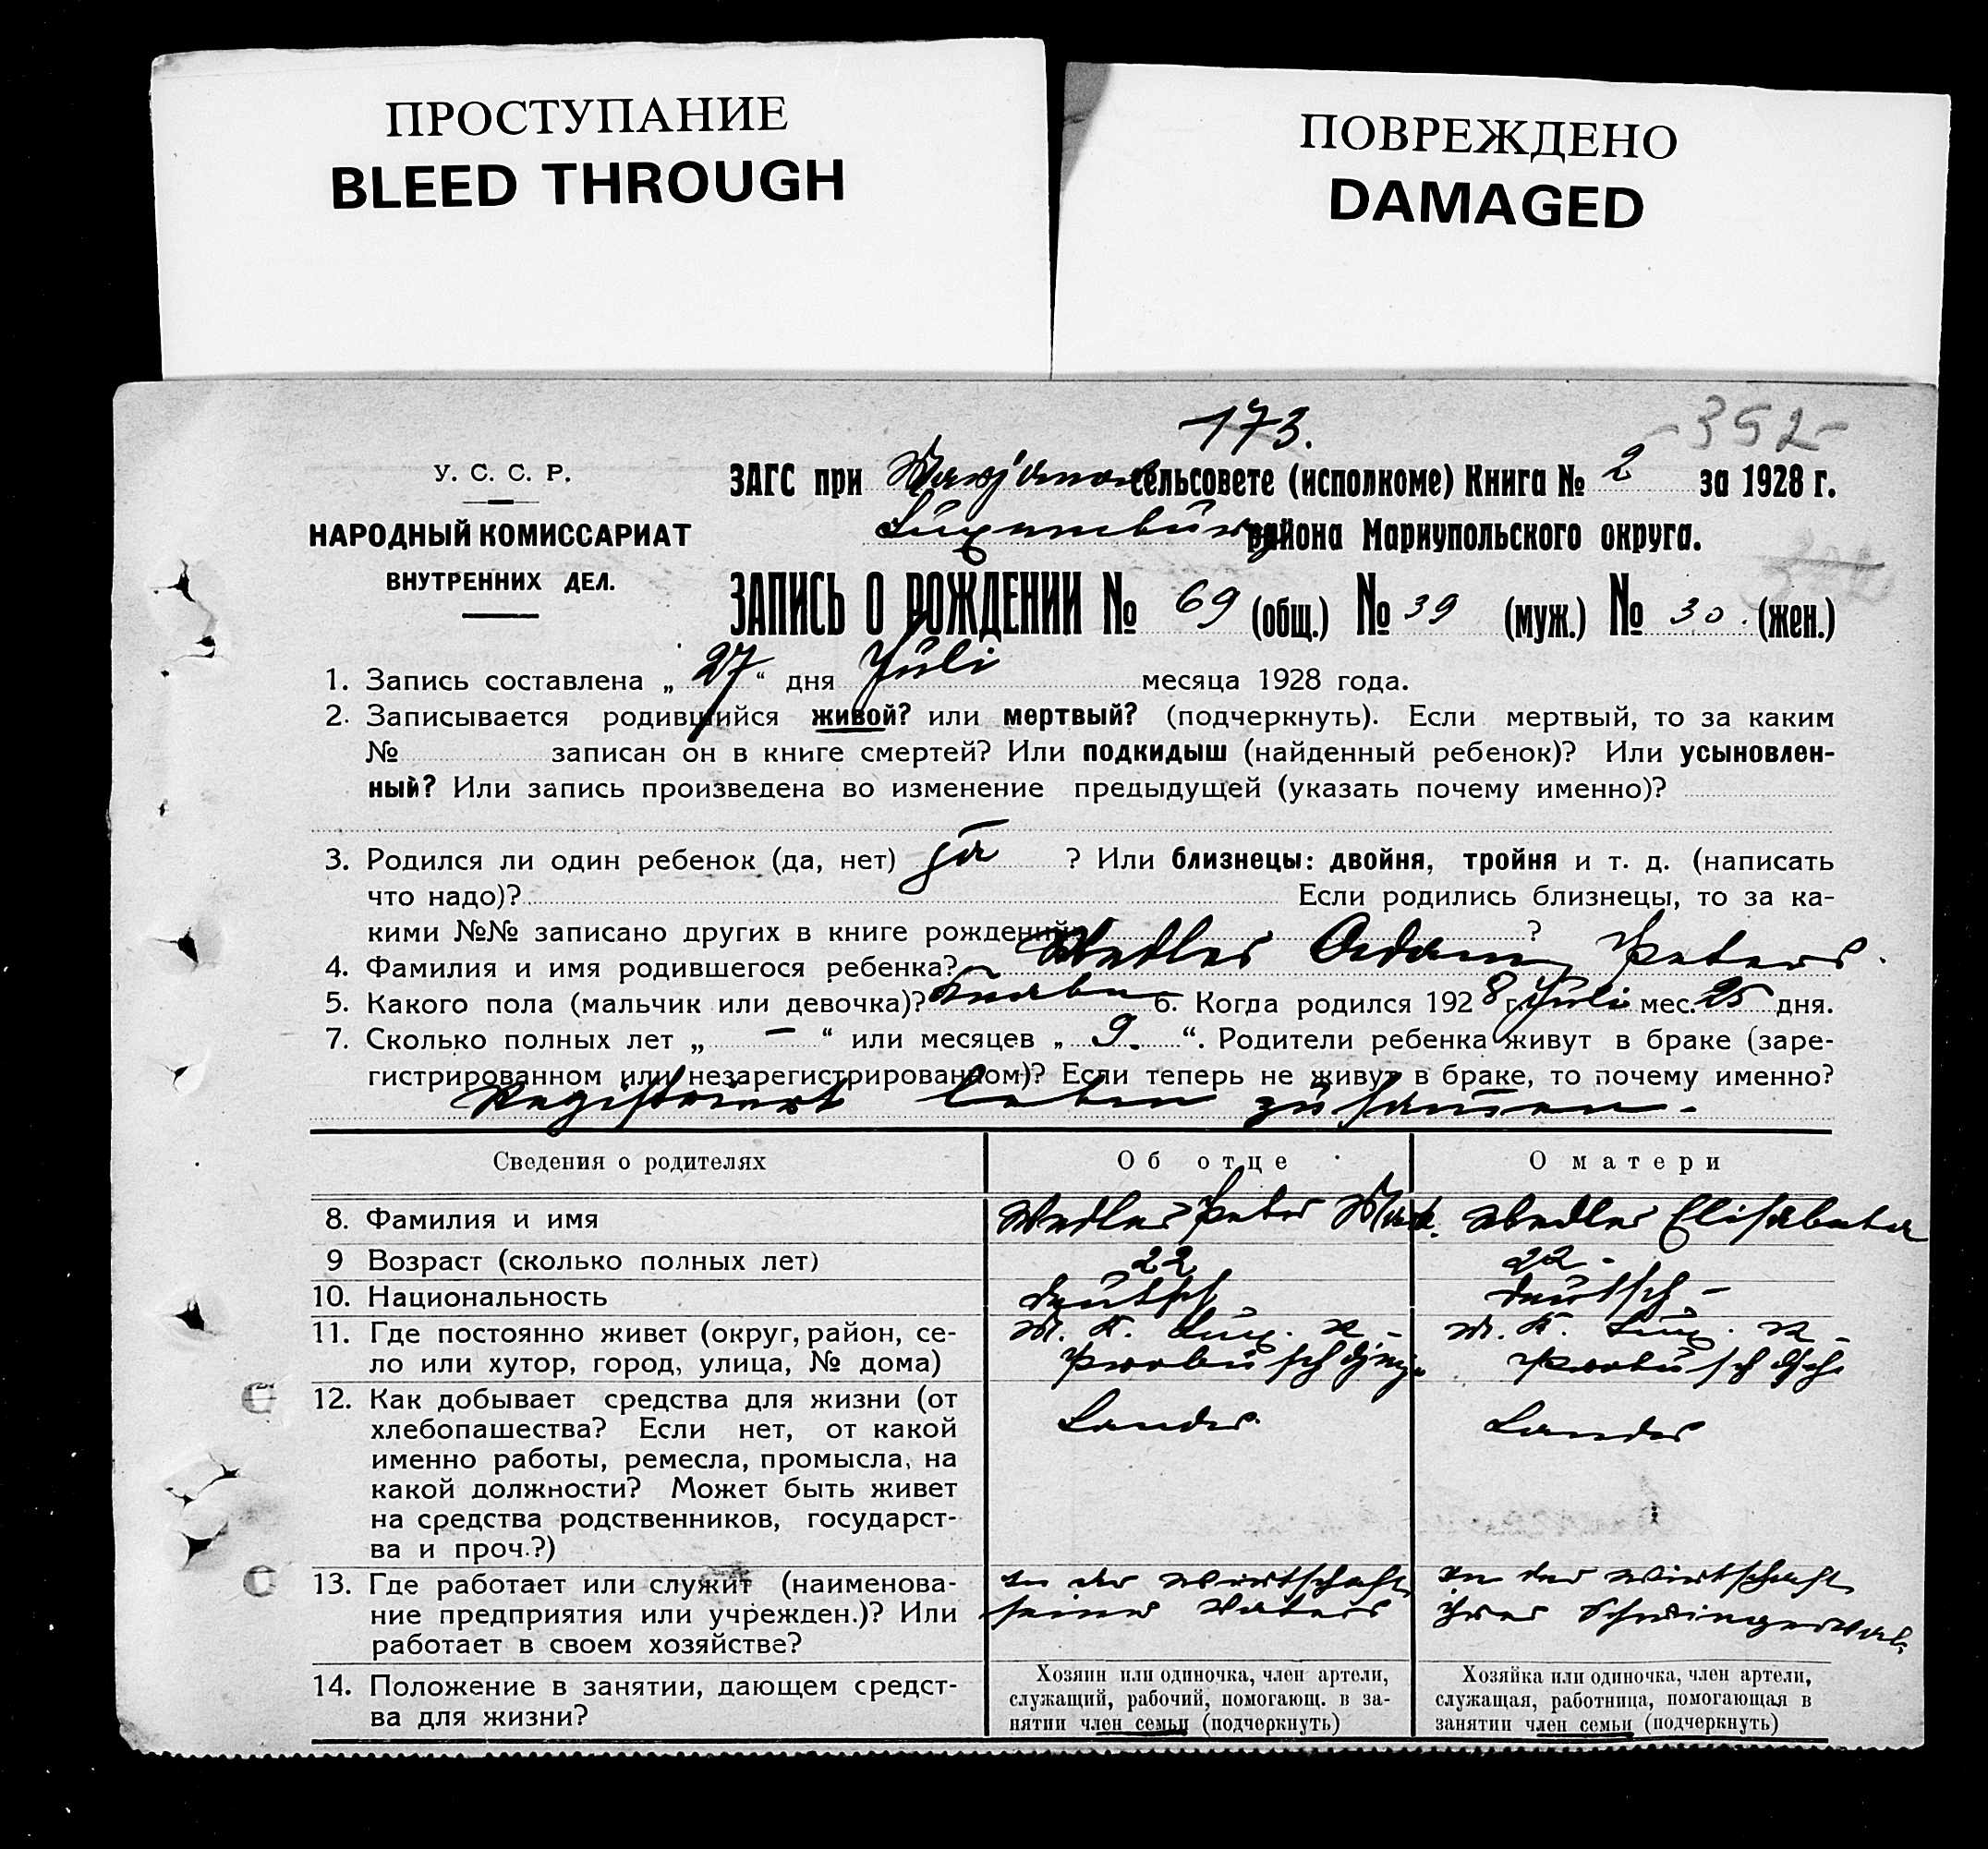 ПРОСТУПАНИЕ
BLEED THROUGH
ПОВРЕЖДЕНО
DAMAGED
173.
-352-
У. С. С. Р.
НАРОДНЫЙ КОМИССАРИАТ
ВНУТРЕННИХ ДЕЛ.
ЗАГС при Marjanow сельсовете (исполкоме) Книга № 2 за 1928 г.
Luxemburg района Мариупольского округа.
ЗАПИСЬ О РОЖДЕНИИ № 69 (общ.) № 39 (муж.) № 30. (жен.)
1. Запись составлена „ 27 “ дня Juli месяца 1928 года.
2. Записывается родившийся живой? или мертвый? (подчеркнуть). Если мертвый, то за каким
№ записан он в книге смертей? Или подкидыш (найденный ребенок)? Или усыновлен-
ный? Или запись произведена во изменение предыдущей (указать почему именно)?
3. Родился ли один ребенок (да, нет) ja ? Или близнецы: двойня, тройня и т. д. (написать
что надо)? Если родились близнецы, то за ка-
кими №№ записано других в книге рождений ?
4. Фамилия и имя родившегося ребенка? Wedler Adam Peters.
5. Какого пола (мальчик или девочка)? Knabe 6. Когда родился 1928 г. Juli мес. 25 дня.
7. Сколько полных лет „ — “ или месяцев „ 9. “. Родители ребенка живут в браке (заре-
гистрированном или незарегистрированном)? Если теперь не живут в браке, то почему именно?
Registriert leben zusamen.
Сведения о родителях Об отце О матери
8. Фамилия и имя Wedler Peter Wedler Elisabeta
9 Возраст (сколько полных лет) 22 22 -
10. Национальность deutsch deutsch -
11. Где постоянно живет (округ, район, се- M. K. Lux. R - M. K. Lux. R -
ло или хутор, город, улица, № дома)
12. Как добывает средства для жизни (от
хлебопашества? Если нет, от какой
именно работы, ремесла, промысла, на
какой должности? Может быть живет
на средства родственников, государст-
ва и проч.?)
13. Где работает или служит (наименова- in der Wirtschaft in der Wirtschaft
ние предприятия или учрежден.)? Или seines Vaters ihres
работает в своем хозяйстве?
14. Положение в занятии, дающем средст-
ва для жизни?
Хозяин или одиночка, член артели,
служащий, рабочий, помогающ. в за-
нятии член семьи (подчеркнуть)
Хозяйка или одиночка, член артели,
служащая, работница, помогающая в
занятии член семьи (подчеркнуть)